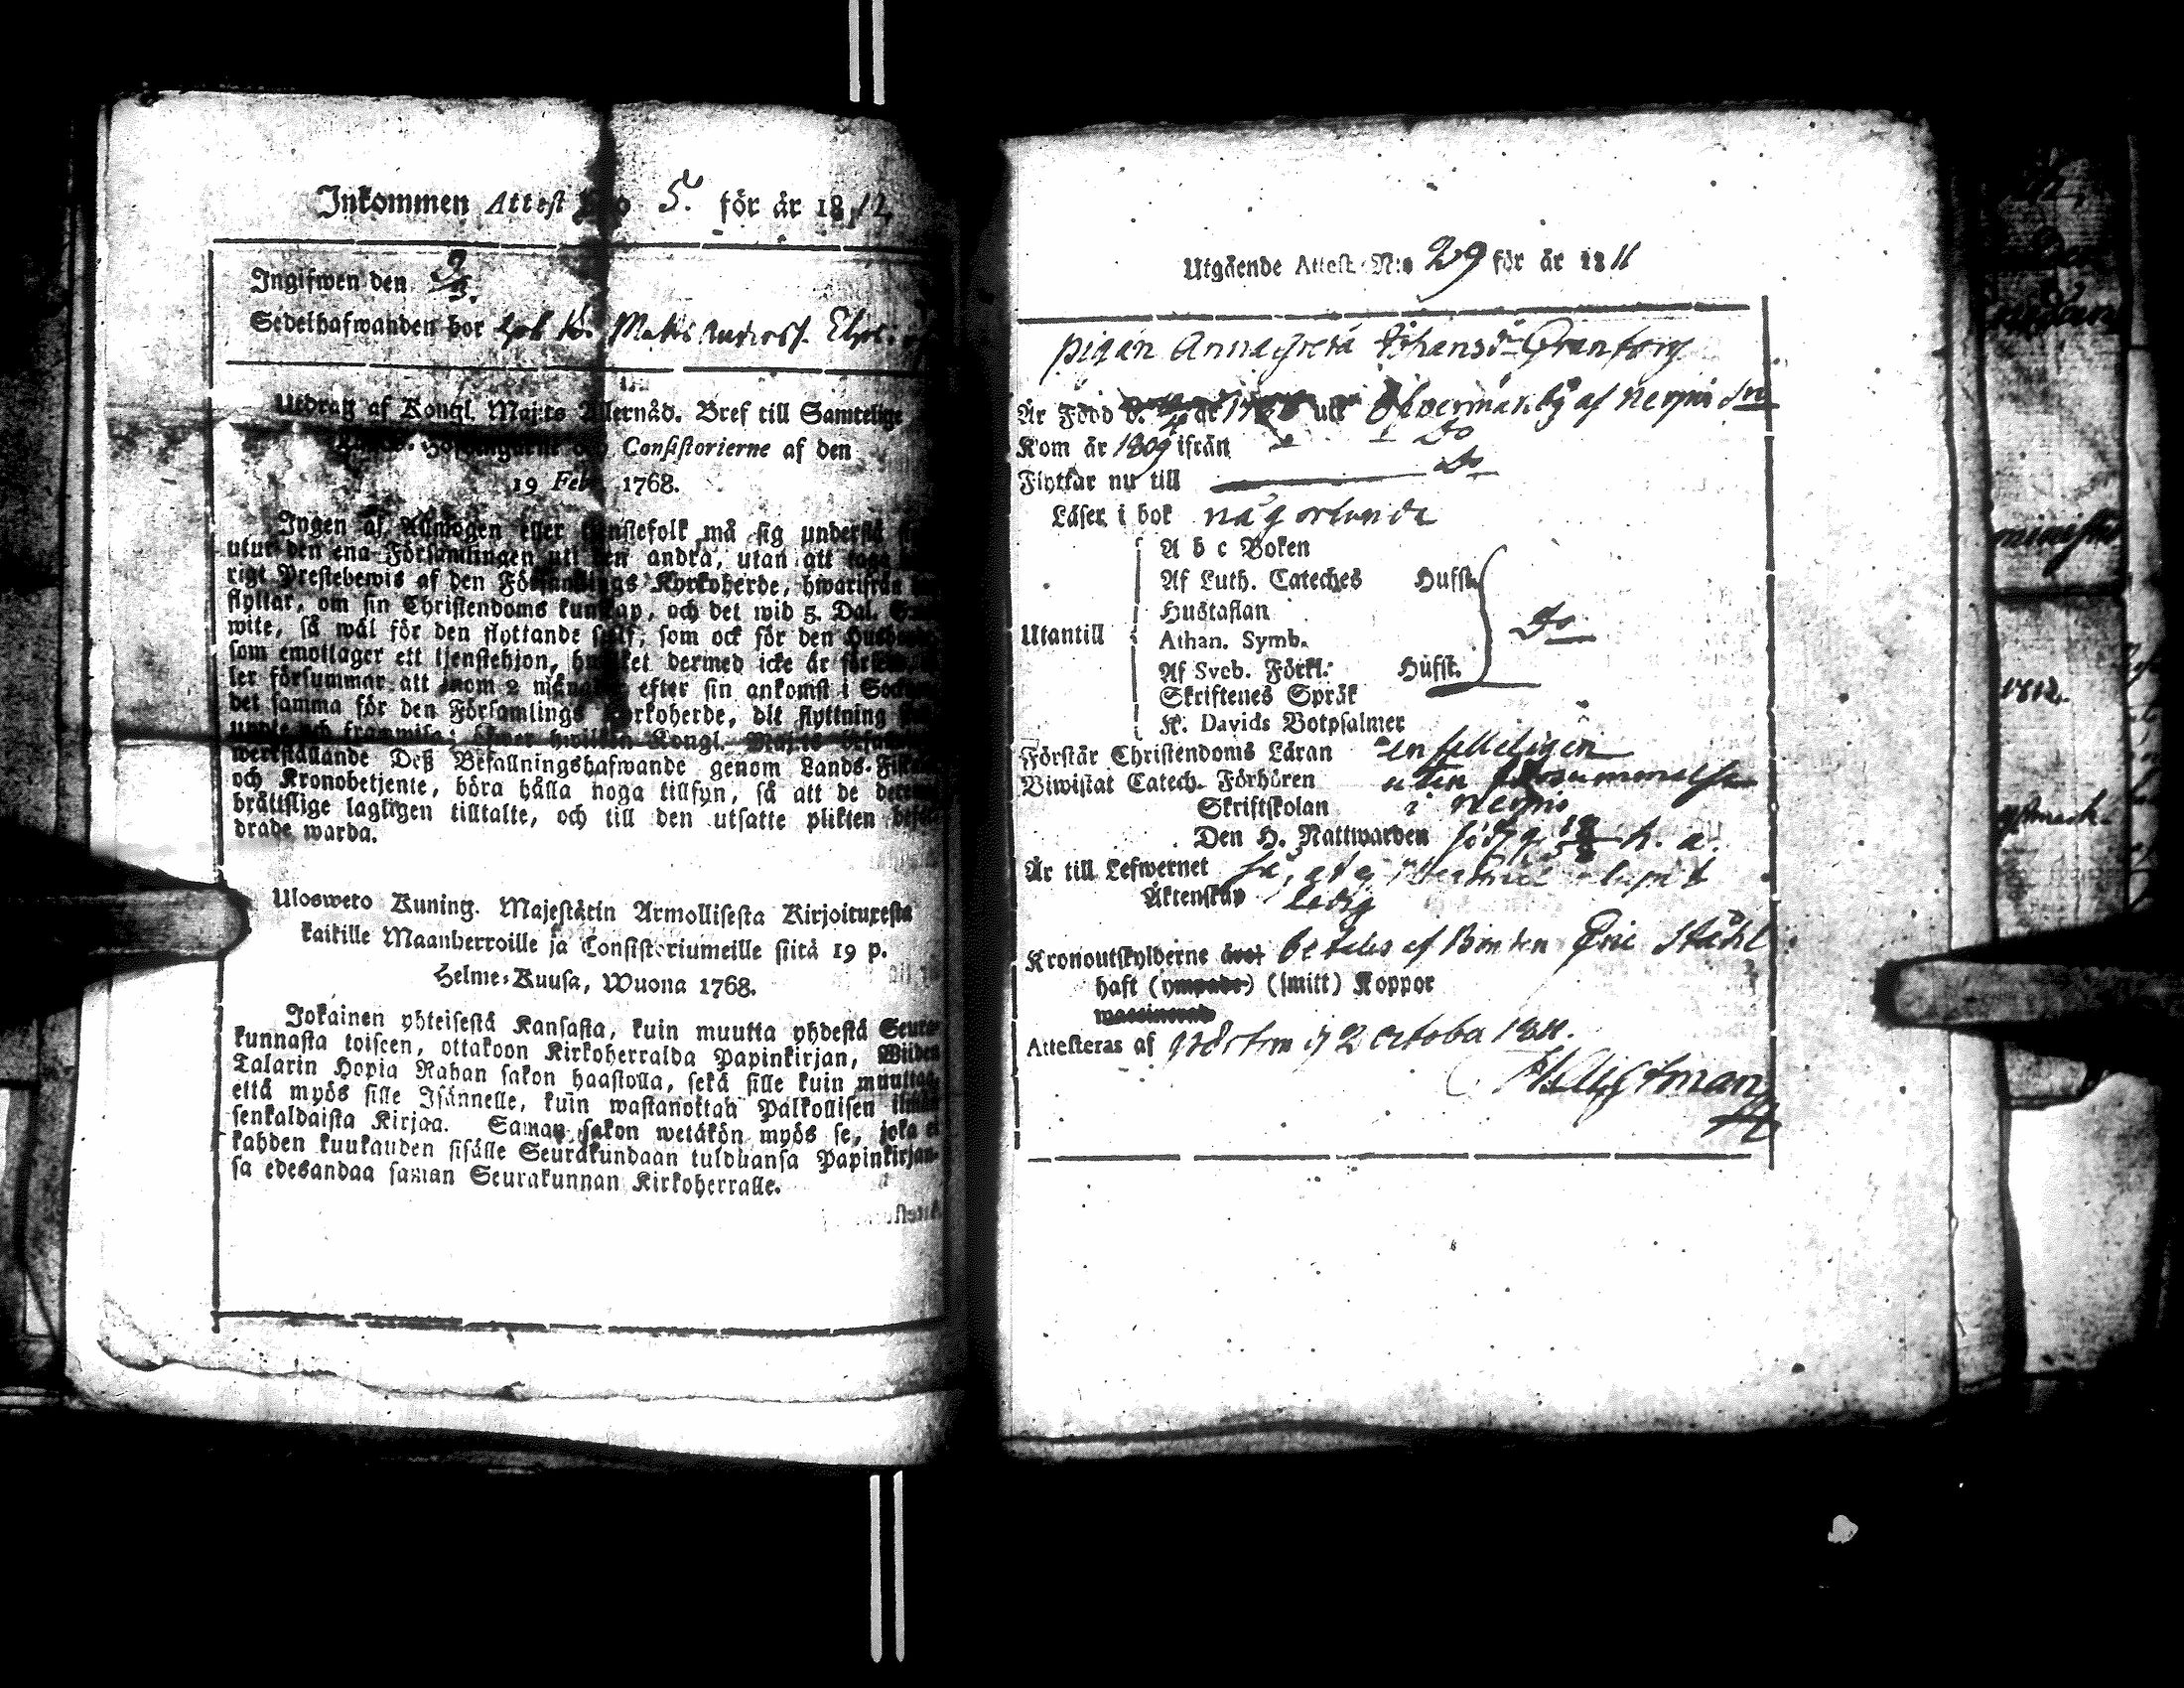 Inkommen Attest 5. för år 1812
Ingifwen den
Sedelhafwanden bor Matts Anderss.
Utdrag af Kongl. Maj:ts Allernåd. Bref till Samtelige
Consistorierne af den
19 Feb. 1768.
Ingen af Allmogen eller tjenstefolk må sig understå
utur den ena Församlingen uti den andra, utan att taga
rigt Prestebewis af den Församlings Kyrkoherde, hwarifrån
flyttar, om sin Christendoms kunskap, och det wid 5. Dal.
wite, så wäl för den flyttande sjelf, som ock för den
som emottager ett tjenstehjon, hwilket dermed icke är
ler försummar att inom 2 månader efter sin ankomst i
det samma för den Församlings Kyrkoherde, dit flyttning
uppte och frammisa; öfwer hwilken Kongl. Maj:ts
werkställande Deß Befallningshafwande genom Lands-
och Kronobetjente, böra hålla noga tillsyn, så att de
bråttslige lagligen tilltalte, och till den utsatte plikten
drade warda.
Ulosweto Kuning. Majestätin Armollisesta Kirjoituxesta
kaikille Maanherroille ja Consistoriumeille siitä 19 p.
Helme-Kuusa, Wuona 1768.
Jokainen yhteisestä Kansasta, kuin muutta yhdestä Seura-
kunnasta toiseen, ottakoon Kirkoherralda Papinkirjan, Wiiden
Talarin Hopia Rahan sakon haastolla, sekä sille kuin muuttaa,
että myös sille Isännelle, kuin wastanottaa Palkollisen ilman
senkaldaista Kirjaa. Saman sakon wetäkön myös se, joka ei
kahden kuukauden sisälle Seurakundaan tulduansa Papinkirjaa-
sa edesandaa saman Seurakunnan Kirkoherralle.
Utgående Attest N:o 29 för år 1811
pigan Anna Greta Johansd:r Granberg
Är Född d. år uti Öfvermark by af Nerpis
Kom år 1809 ifrån Do
Flyttar nu till Do
Läser i bok någorlunda
A b c Boken
Af Luth. Cateches Hufst.
Hustaflan
Utantill Athan. Symb. Do
Af Sveb. Förkl. Hufst.
Skriftenes Språk
K. Davids Botpsalmer
Förstår Christendoms Läran enfelleligen
Biwistat Catech. Förhören utan försummelse
Skriftskolan i Nerpis
Den H. Nattwarden h. a.
Är till Lefwernet
Äktenskap ledig
Kronoutskylderne betales af Bonden Eric Ståhl
haft (ympade) (smitt) Koppor
waccinerad
Attesteras af d 2 October 1811.